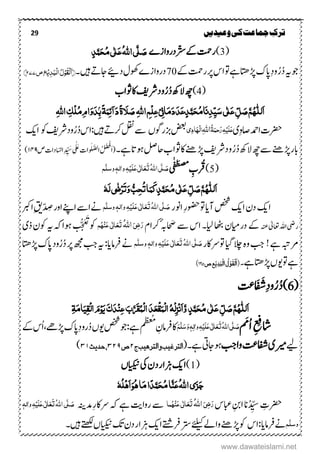 ترک جماعت کی وعیدیں 29
(3) رحمت کے ستر دروازے صَلَّی اللہُ عَلٰی مُحَمَّدٍ
جو یہ دُرُود پاک پڑھتا ہے تو اس پر رحمت کے 70 دروازے کھول دئیے جاتے ہیں۔ (اَلْقَوْلُ الْبَدِیع ص۲۷۷)
(4) چھ لاکھ دُرُود شریف کا ثواب
اَللّٰھُمَّ صَلِّ عَلٰی سَیِّدِنَا مُحَمَّدٍ عَدَدَ مَا فِیْ عِلْمِ اللہِ صَلَاۃً دَآئِمَۃً بِدَوَامِ مُلْکِ اللہِ
حضرت احمد صاوی عَلَیْہِ رَحْمَۃُ اللہِ الْھَادِی بعض بزرگوں سے نقل کرتے ہیں: اس دُرُود شریف کو ایک
بار پڑھنے سے چھ لاکھ دُرُود شریف پڑھنے کا ثواب حاصل ہوتا ہے۔ (اَفْضَلُ الصَّلَوَات عَلٰی سَیِّدِ السَّادَات ص۱۴۹)
(5) قُربِ مُصْطَفٰے صَلَّی اللہُ تَعَالٰی عَلَیْہِ واٰلہٖ وسلَّم
اَللّٰھُمَّ صَلِّ عَلٰی مُحَمَّدٍ کَمَا تُحِبُّ وَتَرْضٰی لَہٗ
ایک دن ایک شخص آیا تو حضورِ انور صَلَّی اللہُ تَعَالٰی عَلَیْہِ واٰلہٖ وسلَّم نے اسے اپنے اور صِدِّیقِ اکبر
رضی اللہ تعالیٰ عنہ کے درمیان بٹھا لیا۔ اس سے صحابہ کرام رَضِیَ اللہُ تَعَالٰی عَنْہُم کو تَعَجُّب ہوا کہ یہ کون ذی
مرتبہ ہے! جب وہ چلا گیا تو سرکار صَلَّی اللہُ تَعَالٰی عَلَیْہِ واٰلہٖ وسلَّم نے فرمایا: یہ جب مجھ پر دُرُود پاک پڑھتا
ہے تو یوں پڑھتا ہے۔ (اَلْقَوْلُ الْبَدِیع ص۱۲۵)
(6) دُرُودِ شَفَاعَت
اَللّٰھُمَّ صَلِّ عَلٰی مُحَمَّدٍ وَّاَنْزِلْہُ الْمَقْعَدَ الْمُقَرَّبَ عِنْدَکَ یَوْمَ الْقِیَامَۃِ
شافِعِ اُمَم صَلَّی اللہُ تَعَالٰی عَلَیْہِ واٰلہٖ وَسَلَّم کا فرمانِ معظّم ہے: جو شخص یوں دُرُود پاک پڑھے، اُس کے
لیے میری شفاعت واجب ہو جاتی ہے۔ (الترغیب والترھیب ج۲ ص۳۲۹، حدیث ۳۱)
(1) ایک ہزار دن کی نیکیاں
جَزَی اللہُ عَنَّا مُحَمَّدًا مَّا ھُوَ اَھْلُہٗ
حضرتِ سیِّدُنا ابنِ عباس رَضِیَ اللہُ تَعَالٰی عَنْہُمَا سے روایت ہے کہ سرکارِ مدینہ صَلَّی اللہُ تَعَالٰی عَلَیْہِ واٰلہٖ
وسلم نے فرمایا: اس کو پڑھنے والے کیلئے ستر فرشتے ایک ہزار دن تک نیکیاں لکھتے ہیں۔
www.dawateislami.net